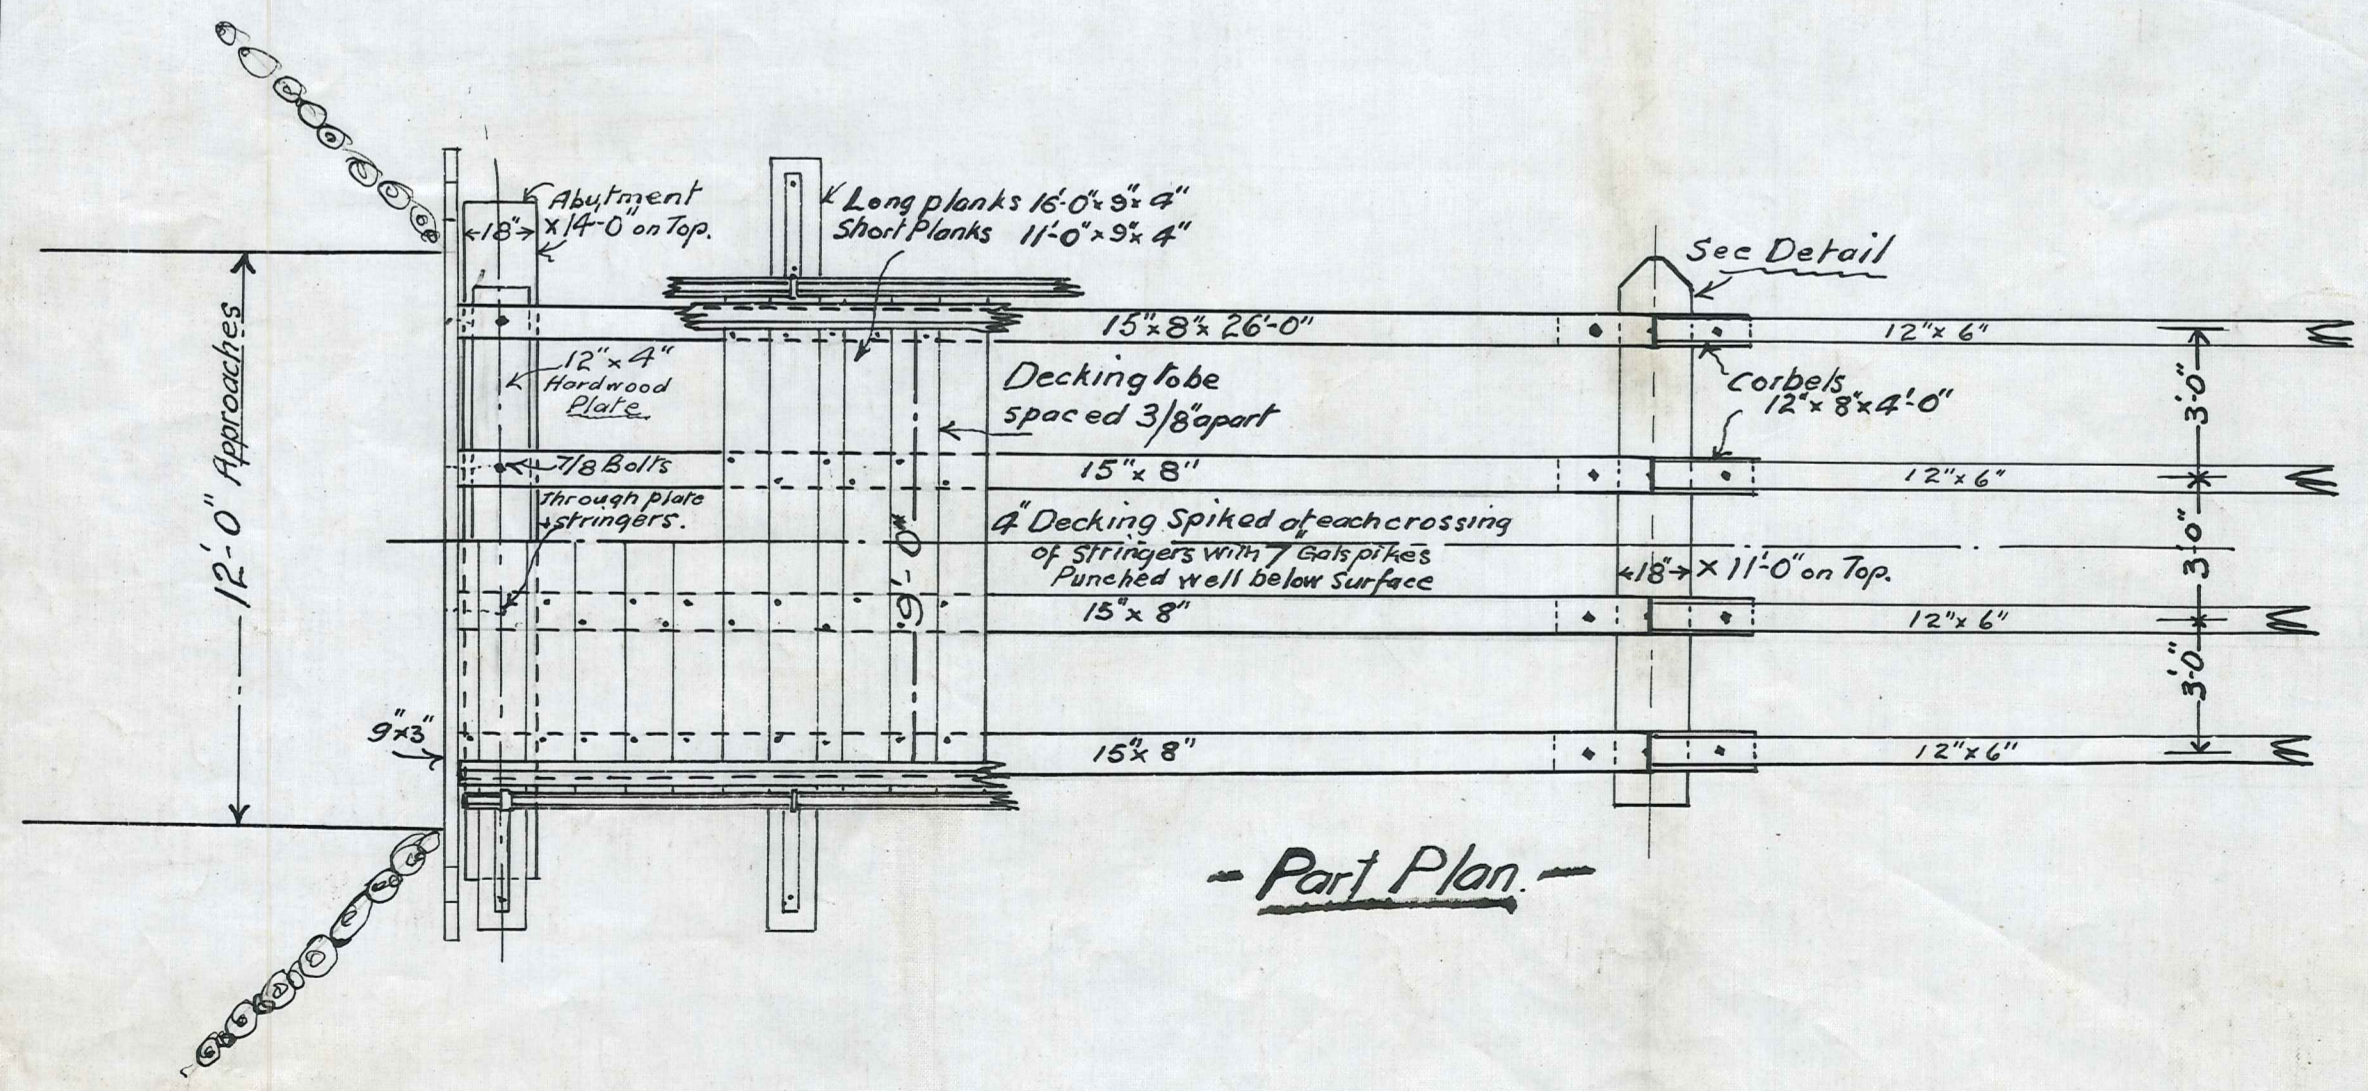 Abutment
←18"→ x 14'-0" on Top.
Long planks 16'-0" x 9" x 4"
Short Planks 11'-0" x 9" x 4"
See Detail
12'-0" Approaches
15" x 8" x 26'-0"
12" x 6"
12" x 4"
Hardwood
Plate
Decking to be
spaced 3/8" apart
Corbels
12" x 8" x 4'-0"
3'-0"
7/8 Bolts
Through plate
+ stringers.
15" x 8"
12" x 6"
4" Decking Spiked at each crossing
of Stringers with 7" Gal spikes
Punched well below Surface
9'-0"
←18"→ x 11'-0" on Top.
3'-0"
15" x 8"
12" x 6"
3'-0"
9" x 3"
15" x 8"
12" x 6"
- Part Plan. -